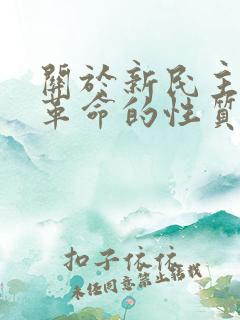 關於新民主
革命的性質
扣子依依
未经同意禁止转载